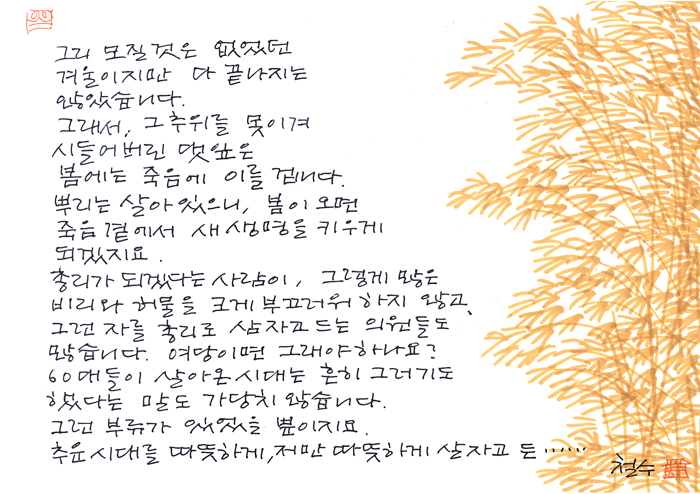 그리 모질것은 없었던
겨울이지만 다 끝나지는
않았습니다.
그래서, 그 추위를 못이겨
시들어버린 댓잎은
봄에는 죽음에 이를 겁니다.
뿌리는 살아있으니, 봄이오면
죽음 곁에서 새 생명을 키우게
되겠지요.
총리가 되겠다는 사람이, 그렇게 많은
비리와 허물을 크게 부끄러워 하지 않고,
그런 자를 총리로 삼자고 드는 의원들도
많습니다. 여당이면 그래야 하나요?
60대들이 살아온 시대는 흔히 그러기도
했다는 말도 가당치 않습니다.
그런 부류가 있었을 뿐이지요.
추운 시대를 따뜻하게, 저만 따뜻하게 살자고 든......
철수